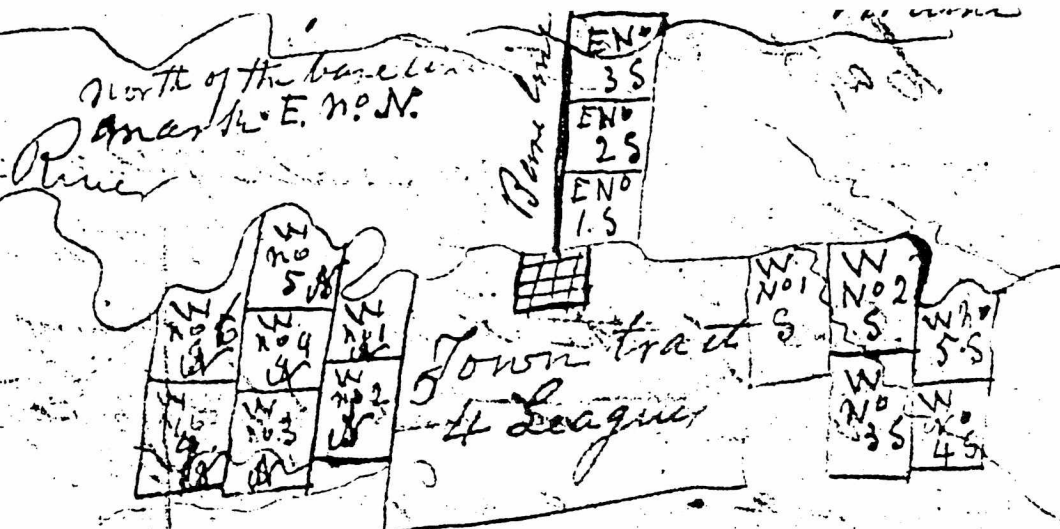 North of the base line
mark E. No. N.
River
Base line
E No
3 S
E No
2 S
E No
1. S
W
no
5 N
W
no 6
N
W
no 4
N
W
no 1
N
W
no 3
N
W
no 2
N
Town tract
5
4 League
W
No 1
S
W
No 2
S
W No
5. S
W
No
3 S
W
No
4 S